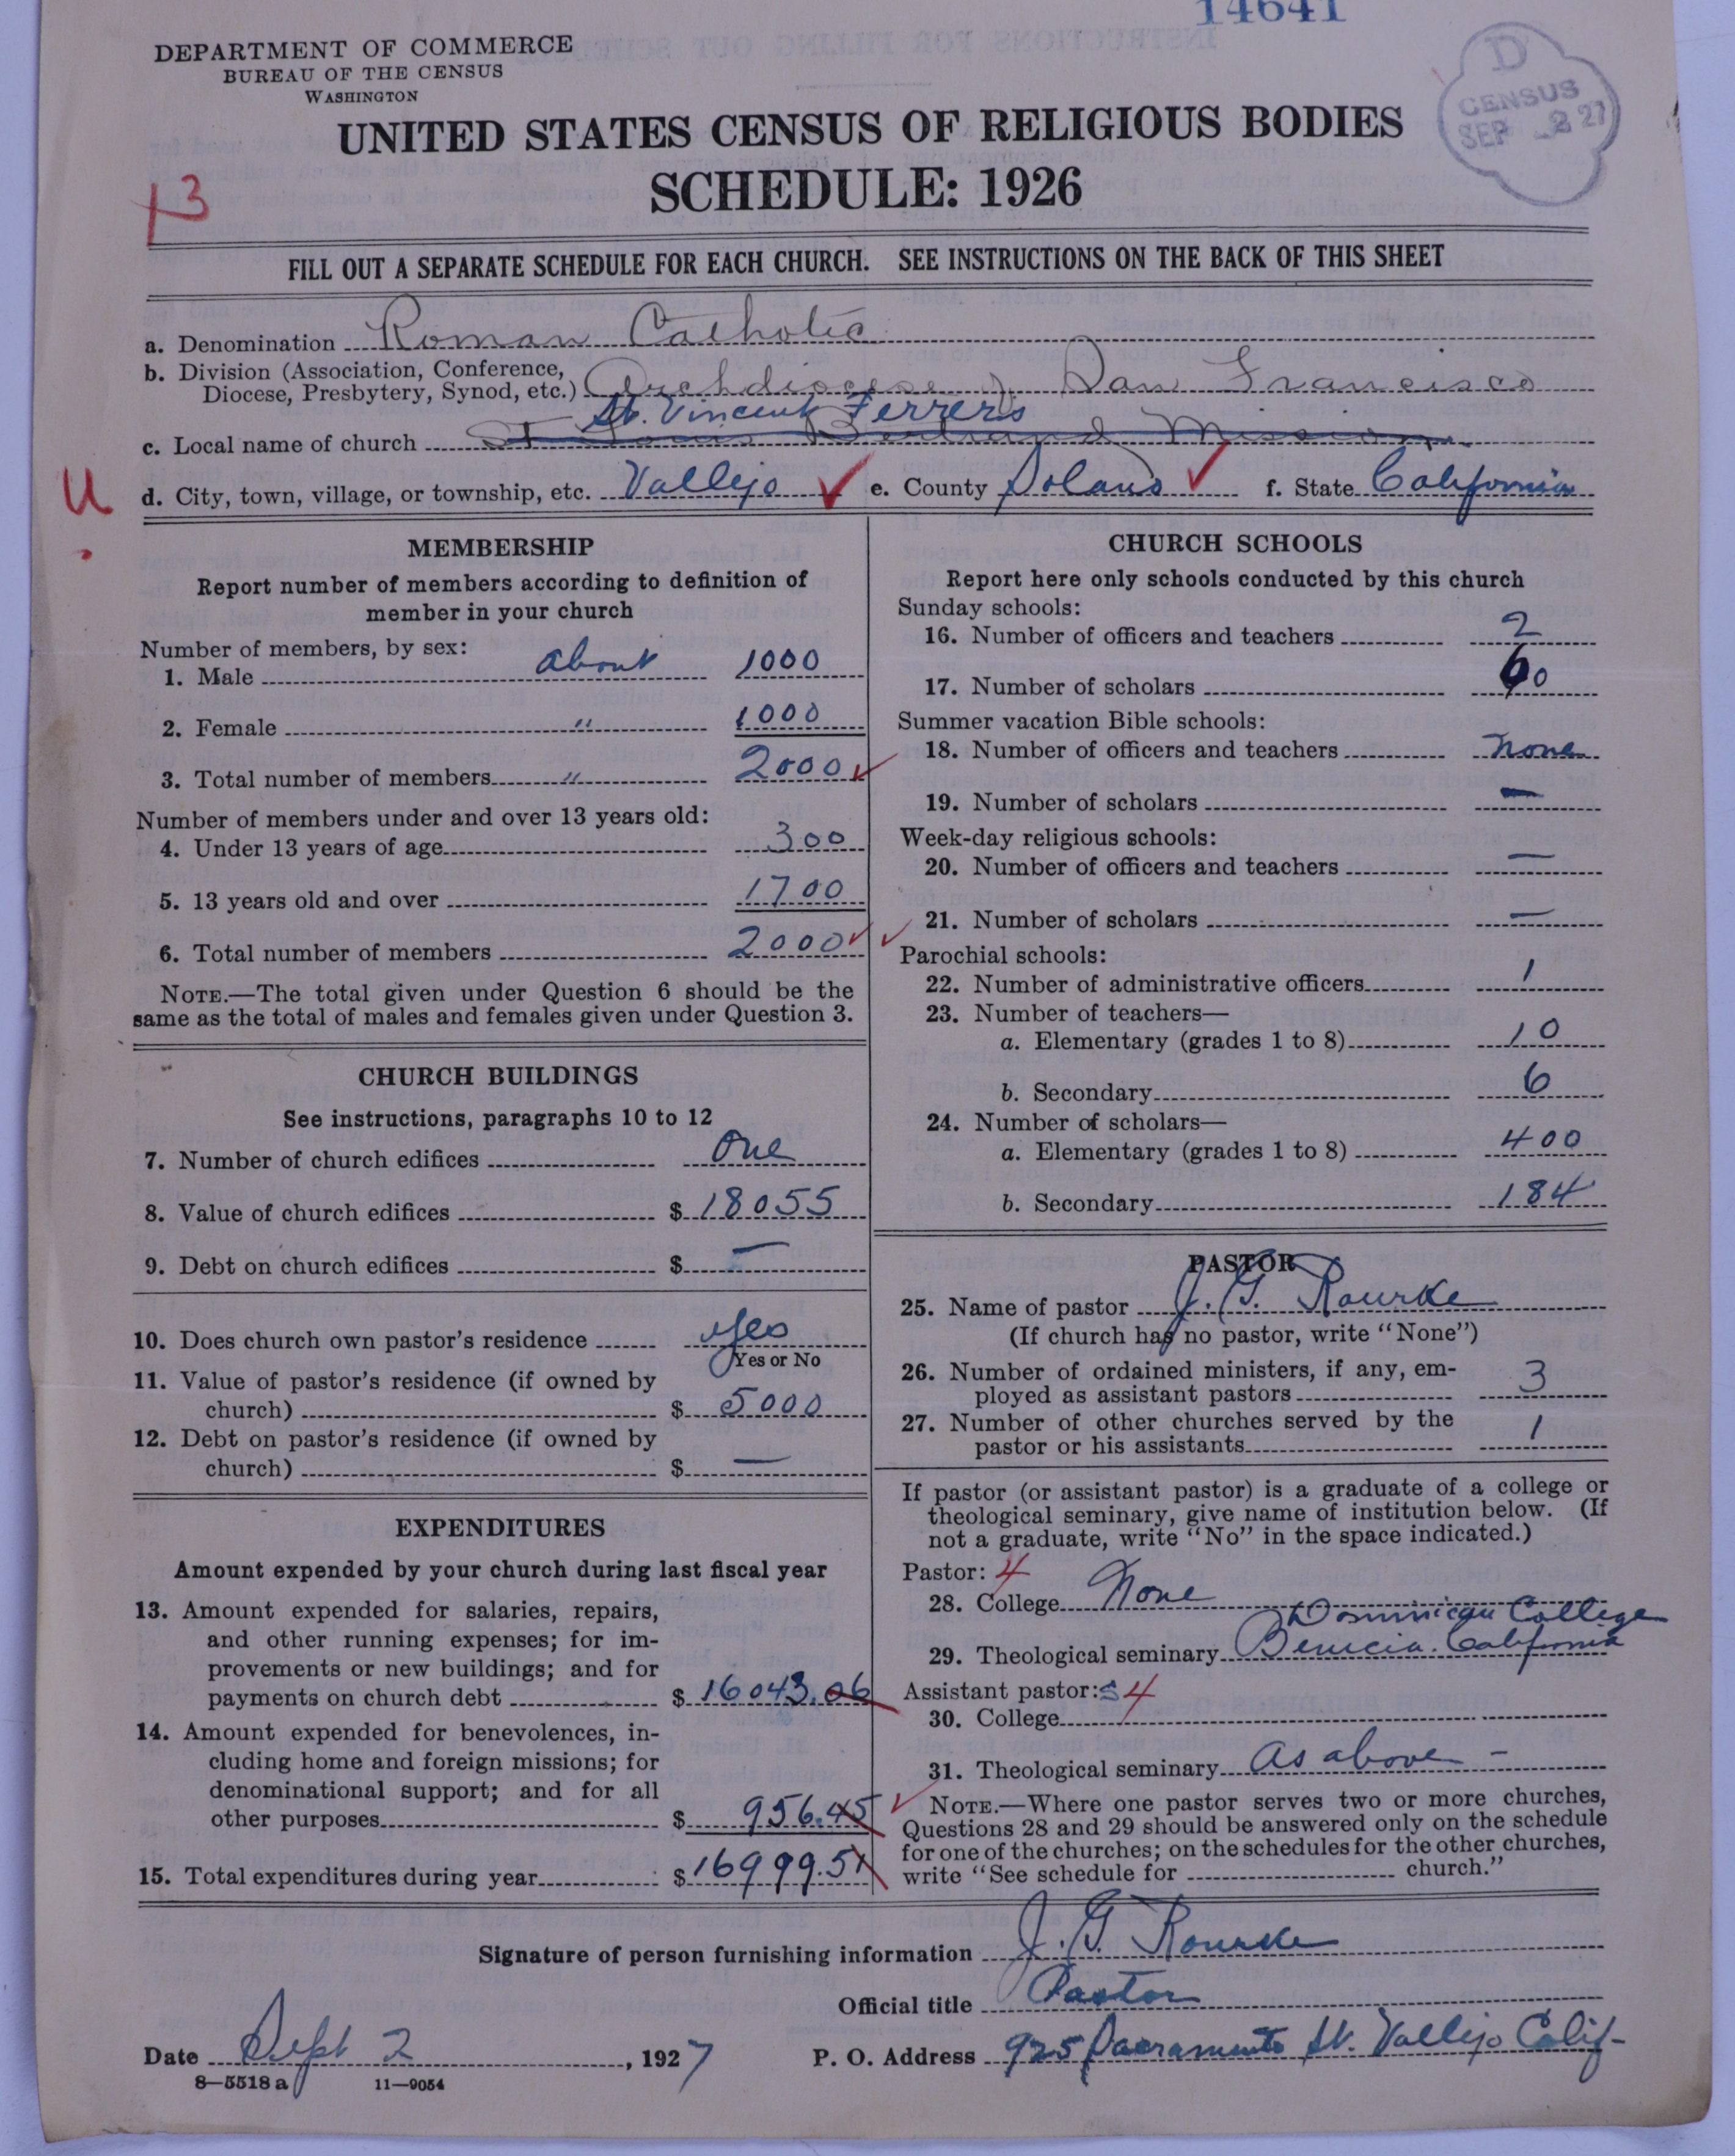 14641
DEPARTMENT OF COMMERCE
BUREAU OF THE CENSUS
WASHINGTON
D
CENSUS
SEP 2 27
UNITED STATES CENSUS OF RELIGIOUS BODIES
SCHEDULE: 1926
13
FILL OUT A SEPARATE SCHEDULE FOR EACH CHURCH. SEE INSTRUCTIONS ON THE BACK OF THIS SHEET
a. Denomination Roman Catholic
b. Division (Association, Conference,
Diocese, Presbytery, Synod, etc.) Archdiocese of San Francisco
St. Vincent Ferrer's
c. Local name of church St Louis Bertrand Mission
U
d. City, town, village, or township, etc. Vallejo e. County Solano f. State California
MEMBERSHIP
Report number of members according to definition of
member in your church
Number of members, by sex:
1. Male about 1000
2. Female " 1000
3. Total number of members " 2000
Number of members under and over 13 years old:
4. Under 13 years of age 300
5. 13 years old and over 1700
6. Total number of members 2000
NOTE.—The total given under Question 6 should be the
same as the total of males and females given under Question 3.
CHURCH BUILDINGS
See instructions, paragraphs 10 to 12
7. Number of church edifices One
8. Value of church edifices $ 18055
9. Debt on church edifices $ —
10. Does church own pastor's residence yes
Yes or No
11. Value of pastor's residence (if owned by
church) $ 5000
12. Debt on pastor's residence (if owned by
church) $ —
EXPENDITURES
Amount expended by your church during last fiscal year
13. Amount expended for salaries, repairs,
and other running expenses; for im-
provements or new buildings; and for
payments on church debt $ 16043.06
14. Amount expended for benevolences, in-
cluding home and foreign missions; for
denominational support; and for all
other purposes $ 956.45
15. Total expenditures during year $ 16999.51
CHURCH SCHOOLS
Report here only schools conducted by this church
Sunday schools:
16. Number of officers and teachers 2
17. Number of scholars 60
Summer vacation Bible schools:
18. Number of officers and teachers none
19. Number of scholars —
Week-day religious schools:
20. Number of officers and teachers —
21. Number of scholars —
Parochial schools:
22. Number of administrative officers 1
23. Number of teachers—
a. Elementary (grades 1 to 8) 10
b. Secondary 6
24. Number of scholars—
a. Elementary (grades 1 to 8) 400
b. Secondary 184
PASTOR
25. Name of pastor J. G. Rourke
(If church has no pastor, write "None")
26. Number of ordained ministers, if any, em-
ployed as assistant pastors 3
27. Number of other churches served by the
pastor or his assistants 1
If pastor (or assistant pastor) is a graduate of a college or
theological seminary, give name of institution below. (If
not a graduate, write "No" in the space indicated.)
Pastor: 4
28. College None
Dominican College
29. Theological seminary Benicia. California
Assistant pastor: s 4
30. College
31. Theological seminary As above -
NOTE.—Where one pastor serves two or more churches,
Questions 28 and 29 should be answered only on the schedule
for one of the churches; on the schedules for the other churches,
write "See schedule for church."
Signature of person furnishing information J. G. Rourke
Official title Pastor
Date Sept 2, 1927 P. O. Address 925 Sacramento St. Vallejo Calif-
8—5518 a 11—9054